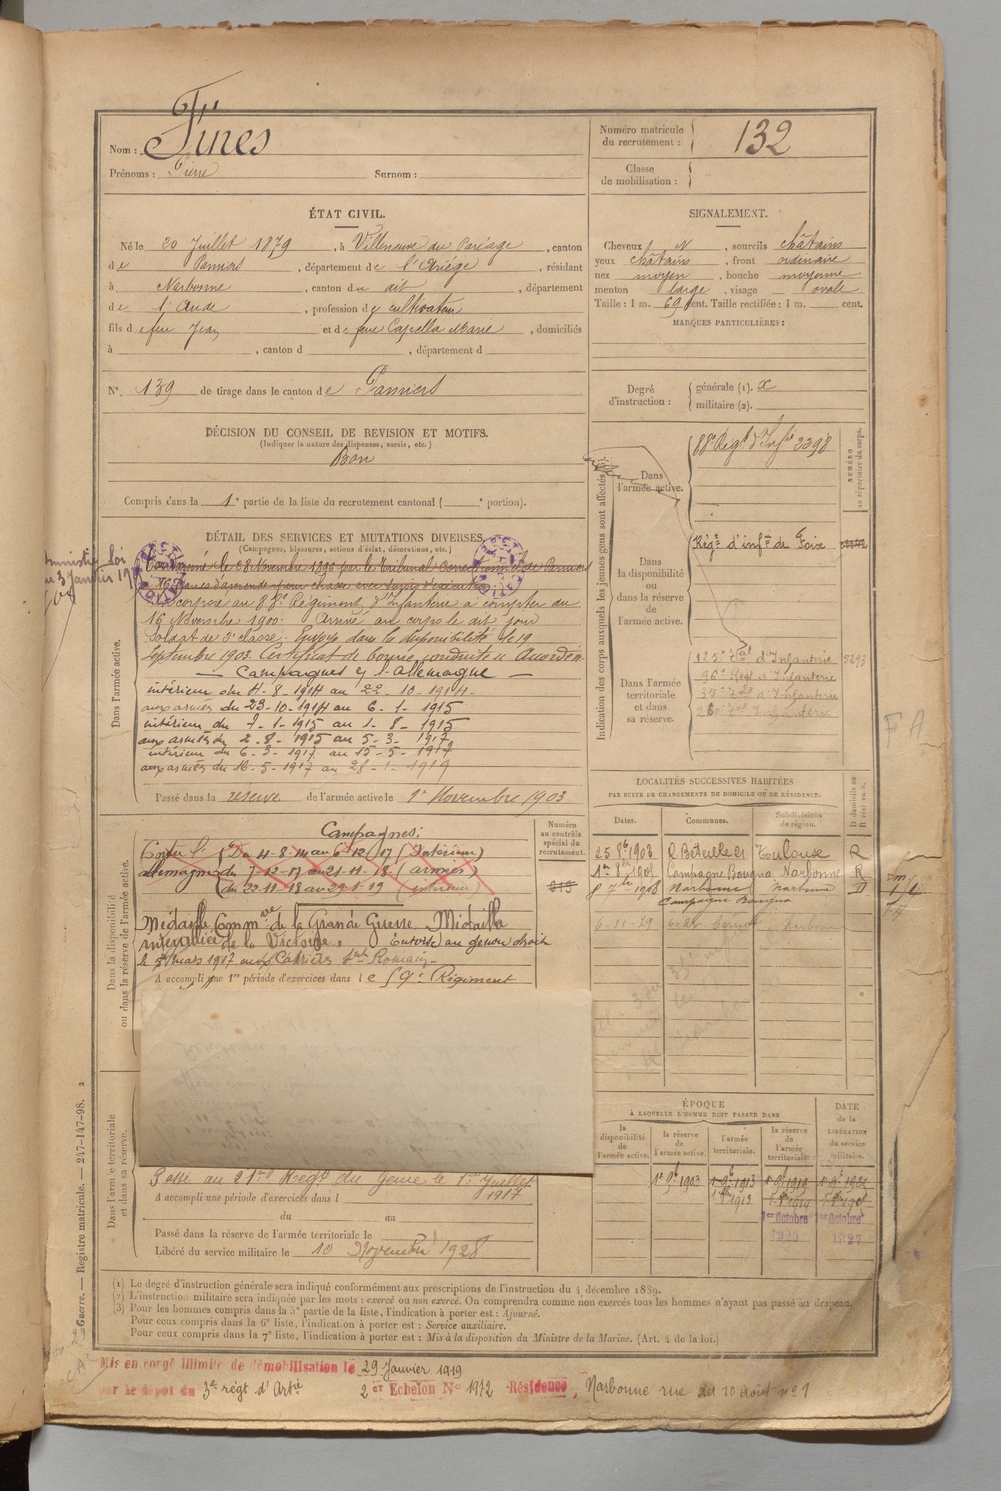 Nom : Fines
Prénoms : Pierre Surnom :
Numéro matricule du recrutement : 132
Classe de mobilisation :
ÉTAT CIVIL.
Né le 20 Juillet 1879, à Villeneuve du Paréage, canton
de Pamiers, département de l'Ariège, résidant
à Narbonne, canton du dit, département
de l'Aude, profession de cultivateur
fils de feu Jean et de feue Capella Marie, domiciliés
à , canton d , département d
N° 139 de tirage dans le canton de Pamiers
SIGNALEMENT.
Cheveux N, sourcils châtains
yeux châtains, front ordinaire
nez moyen, bouche moyenne
menton large, visage ovale
Taille : 1 m. 69 cent. Taille rectifiée : 1 m. cent.
MARQUES PARTICULIÈRES :
Degré d'instruction : générale (1). x
militaire (2).
DÉCISION DU CONSEIL DE REVISION ET MOTIFS.
(Indiquer la nature des dispenses, sursis, etc.)
Bon
Compris dans la 1e partie de la liste du recrutement cantonal ( e portion).
DÉTAIL DES SERVICES ET MUTATIONS DIVERSES.
(Campagnes, blessures, actions d'éclat, décorations, etc.)
Dans l'armée active.
Condamné le 28 Novembre 1896 par le Tribunal Correctionnel de Pamiers
16 francs d'amende pour chasse
Incorporé au 88e Régiment d'Infanterie à compter du
16 Novembre 1900. Arrivé au corps le dit jour
Soldat de 2e classe. Envoyé dans la disponibilité le 19
Septembre 1903. Certificat de bonne conduite « Accordé »
Campagnes c/ l'allemagne
intérieur du 4-8-1914 au 22-10-1914
aux armées du 23-10-1914 au 6-1-1915
intérieur du 7-1-1915 au 1-8-1915
aux armées du 2-8-1915 au 5-3-1917
intérieur du 6-3-1917 au 15-5-1917
aux armées du 16-5-1917 au 28-1-1919
Passé dans la réserve de l'armée active le 1er Novembre 1903
Indication des corps auxquels les jeunes gens sont affectés.
NUMÉRO au répertoire du corps.
Dans l'armée active.
88e Régt d'Infie 3398
Dans la disponibilité ou dans la réserve de l'armée active.
Régt d'infie de Foix
Dans l'armée territoriale et dans sa réserve.
125e d'Infanterie 5293
96e Régt d'Infanterie
d'Infanterie
Infanterie
FA
Dans la disponibilité ou dans la réserve de l'armée active.
Numéro au contrôle spécial du recrutement.
Campagnes :
Contre l' Du 4-8-14 au 6-12-17 (Intérieur)
allemagne du 7-12-17 au 21-11-18 (armées)
du 22-11-18 au 29-1-19 (intérieur)
Médaille Commve de la Grande Guerre Médaille
interalliée de la Victoire. Entorse au genou droit
le 5 mars 1917 aux Carrières St Romain
A accompli une 1re période d'exercices dans le 59e Régiment
LOCALITÉS SUCCESSIVES HABITÉES
PAR SUITE DE CHANGEMENTS DE DOMICILE OU DE RÉSIDENCE.
Dates. Communes. Subdivisions de région. D domicile ou R résidence.
25 8b 1903 R Béteille 21 Toulouse R
Campagne Bougna Narbonne R
8 7bre 1908 Narbonne Narbonne D
Campagne Bougna
6-11-29
ÉPOQUE
À LAQUELLE L'HOMME DOIT PASSER DANS
la disponibilité de l'armée active. la réserve de l'armée active. l'armée territoriale. la réserve de l'armée territoriale.
DATE de la LIBÉRATION du service militaire.
1er 9b 1903 1er 9b 1913
1er Octobre 1er Octobre
1927
Dans l'armée territoriale et dans sa réserve.
Passé au 21me Régt du génie le 1er Juillet
1917
A accompli une période d'exercices dans l
du au
Passé dans la réserve de l'armée territoriale le
Libéré du service militaire le 10 Novembre 1928
(1) Le degré d'instruction générale sera indiqué conformément aux prescriptions de l'instruction du 4 décembre 1889.
(2) L'instruction militaire sera indiquée par les mots : exercé ou non exercé. On comprendra comme non exercés tous les hommes n'ayant pas passé au drapeau.
(3) Pour les hommes compris dans la 5e partie de la liste, l'indication à porter est : Ajourné.
Pour ceux compris dans la 6e liste, l'indication à porter est : Service auxiliaire.
Pour ceux compris dans la 7e liste, l'indication à porter est : Mis à la disposition du Ministre de la Marine. (Art. 4 de la loi.)
Guerre. — Registre matricule. — 247-147-98. 2
Mis en congé illimité de démobilisation le 29 Janvier 1919
par le dépôt du 3e régt d'Artie 2er Echelon N° 1912 Résidence Narbonne rue du 10 Août n° 1